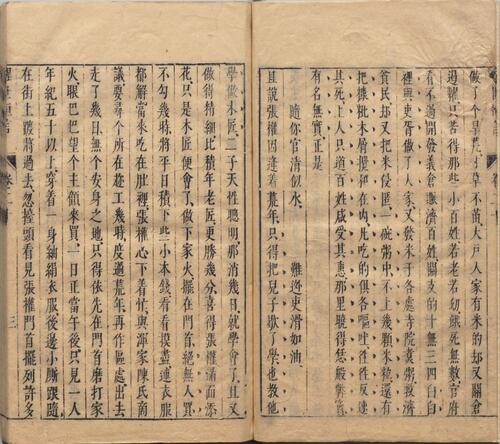 做了个旱荒寸草不苗大戶人家有米的却又關倉
遏糶只苦得那些小百姓若老若幼餓死無數官府
看不過開發義倉賑濟百姓關支的十無三四白白
裡與吏胥做了人家又發米于各處寺院煑粥救濟
貧民却又把米侵匿一碗粥中不上幾顆米粒還有
把糠秕木屑攪和在内凡吃的俱各嘔吐徃徃反速
其死上人只道百姓咸受其惠那里曉得恁般弊竇
有名無實
隨你官清似水 難逃吏滑如油
且說張權因逢着荒年只得把兒子歇了學也教他
學做木匠二子天性聰明那消幾日就學會了且又
做得精細比積年老匠更勝幾分喜得張權滿面添
花只是木匠便會了做下家火擺在門首絕無人買
不勾幾時將平日積下些小本錢看看摸盡連衣服
都解當來吃在肚裡張權心下着忙與渾家陳氏商
議要尋个所在趂工幾時度過荒年再作區處出去
走了幾日無个安身之地只得依先在門首磨打家
火眼巴巴望个主顧來買一日正當午後只見一人
年紀五十以上穿着一身紬絹衣服後邊小厮跟隨
在街上踱將過去忽擡頭看見張權門首擺列許多
醒世恒言
三